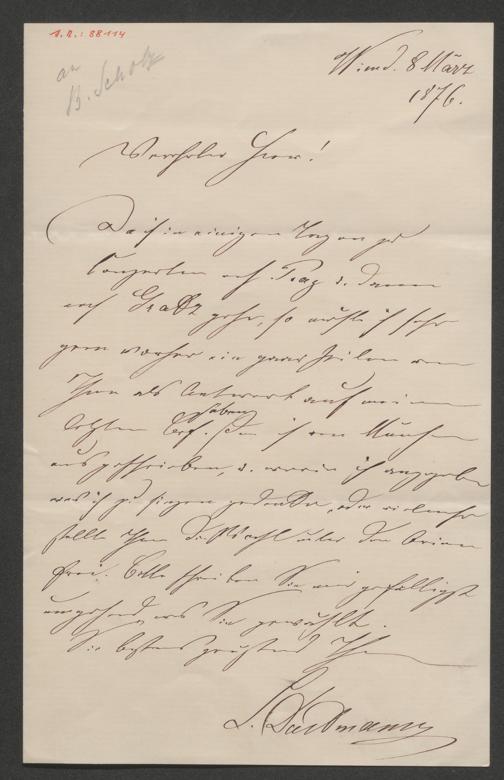 I. N.: 88114
an
B. Scholz
Wien d. 8 März
1876.
Verehrter Herr!
Da ich in einigen Tagen zu
Conzerten nach Prag u. dann
nach Gratz gehe, so möchte ich sehr
gern vorher ein paar Zeilen von
Ihnen als Antwort auf meinen
letzten Brief haben, den ich von München
aus geschrieben, u. worin ich angegeben
was ich zu singen gedenke, oder vielmehr
stellte Ihnen die Wahl unter den Arien
frei. Bitte schreiben Sie mir gefälligst
umgehend was Sie gewählt.
Sie bestens grüßend Ihre
L. Dustmann